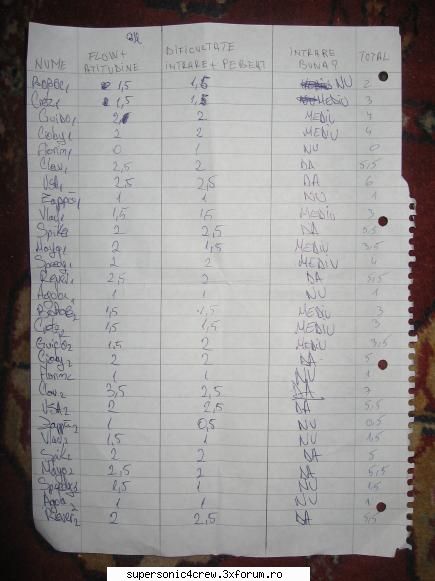 NUME FLOW+ ATITUDINE DIFICULTATE INTRARE + PERBERT INTRARE BUNA? TOTAL
1,5 1,5 NU 2
1,5 1,5 MEDIU 3
Guido1 2 2 MEDIU 4
Cioby1 2 2 MEDIU 4
Florin1 0 1 NU 0
2,5 2 DA 5,5
2,5 2,5 DA 6
Zappa1 1 1 NU 1
Vlad1 1,5 1,5 MEDIU 3
Spike 2 2,5 DA 5,5
2 1,5 MEDIU 3,5
Speedy1 2 2 MEDIU 4
2,5 2 DA 5,5
1 1 NU 1
1,5 1,5 MEDIU 3
1,5 1,5 MEDIU 3
Guido2 1,5 2 MEDIU 3,5
Cioby2 2 2 DA 5
Florin2 1 1 NU 1
3,5 2,5 DA 7
2 2,5 DA 5,5
Zappa2 1 0,5 NU 0,5
Vlad2 1,5 1 NU 1,5
Spike2 2 2 DA 5
2,5 2 DA 5,5
1,5 1 NU 1,5
1 1 NU 1
2 2,5 DA 5,5
supersonic4crew.3xforum.ro